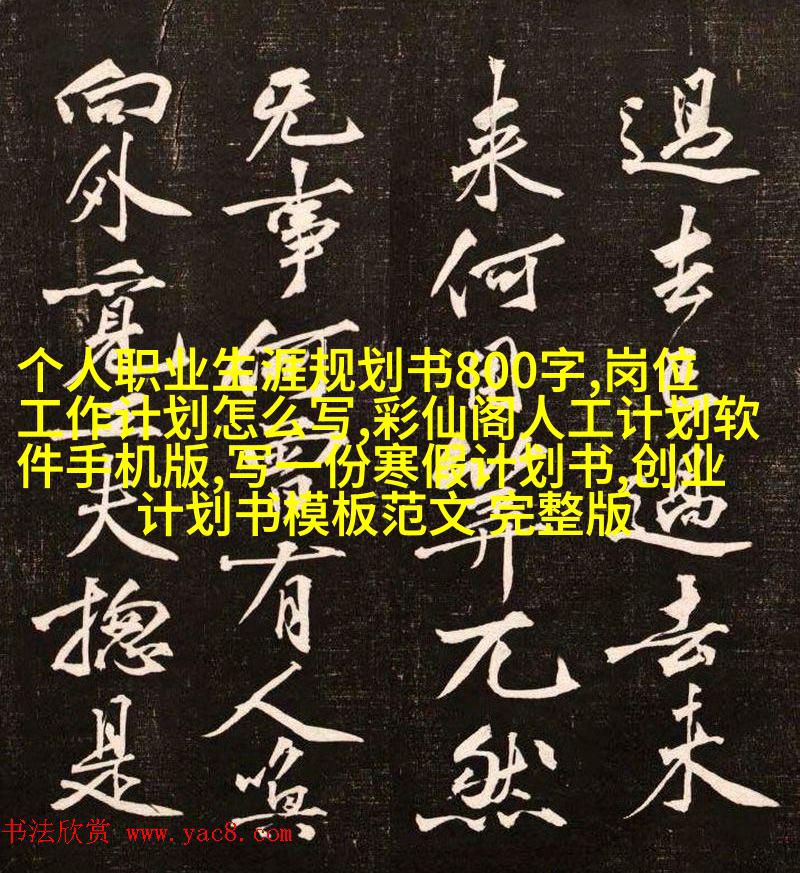 過去已過去未
来何用算兀然
无事何有人喚
向外覓工夫揔是
个人职业生涯规划书800字,岗位
工作计划怎么写,彩仙阁人工计划软
件手机版,写一份寒假计划书,创业
计划书模板范文 完整版
书法欣赏 www.yac8.com